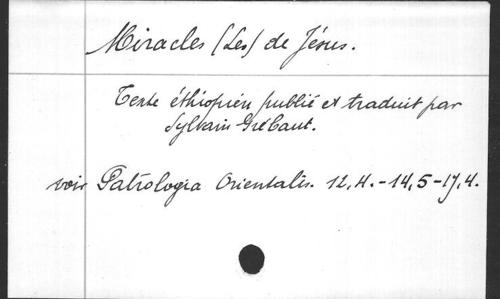 Miracles (Les) de Jésus.
Texte éthiopien publié et traduit par
Sylvain Grébaut.
voir Patrologia Orientalis. 12,4.-14,5-17,4.